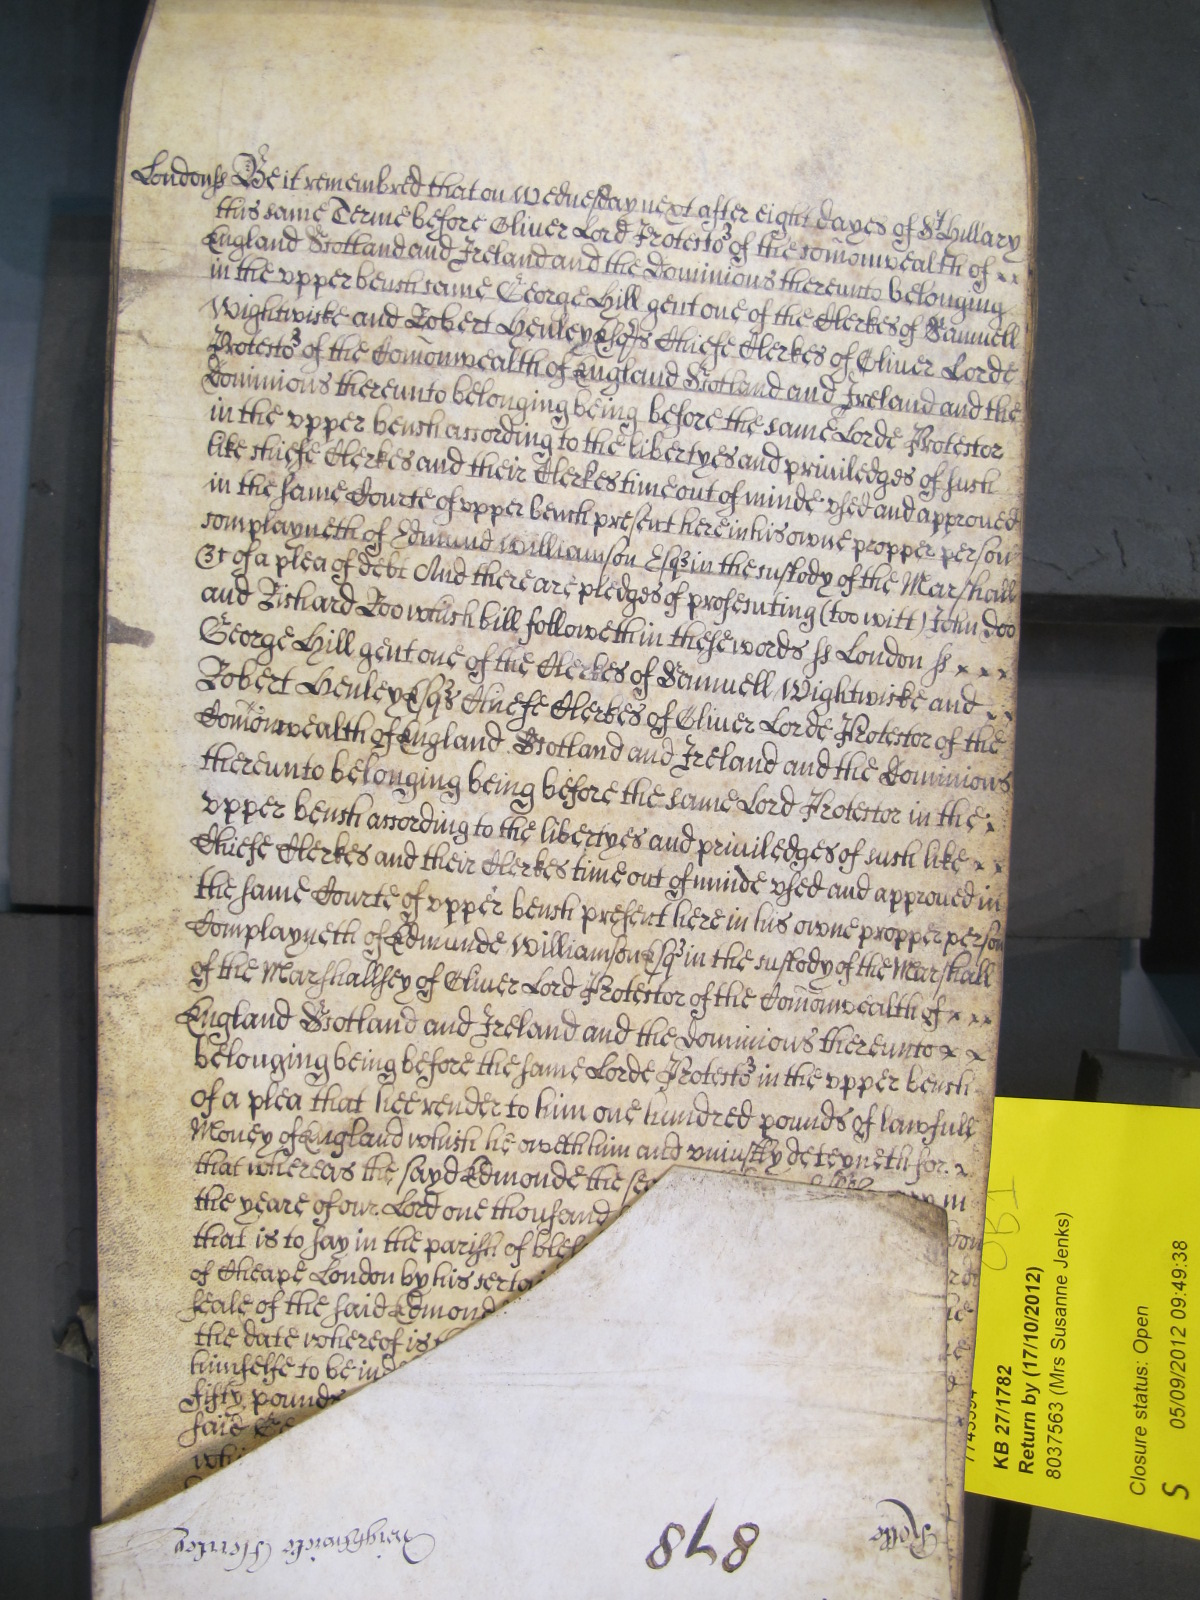 London ss Be it remembred that on Wednesday next after eight dayes of St Hillary
this same Terme before Oliver Lord Protector of the comonwealth of
England Scotland and Ireland and the Dominions thereunto belonging
in the upper bench came George Hill gent one of the Clerkes of Samuell
Wightwicke and Robert Henley Esqrs Chiefe Clerkes of Oliver Lorde
Protector of the Comonwealth of England Scotland and Ireland and the
Dominions thereunto belonging being before the same Lorde Protector
in the upper bench according to the libertyes and priviledges of such
like chiefe Clerkes and their Clerkes time out of minde used and approved
in the same Courte of upper bench present here in his owne propper person
complayneth of Edmund Williamson Esqr in the custody of the Marshall
&c of a plea of debt And there are pledges of prosecuting (too witt) John Doo
and Richard Roo which bill followeth in these words ss London ss
George Hill gent one of the Clerkes of Samuell Wightwicke and
Robert Henley Esqrs Chiefe Clerkes of Oliver Lorde Protector of the
Comonwealth of England Scotland and Ireland and the Dominions
thereunto belonging being before the same Lord Protector in the
upper bench according to the libertyes and priviledges of such like
Chiefe Clerkes and their Clerkes time out of minde used and approved in
the same Courte of upper bench present here in his owne propper person
Complayneth of Edmunde Williamson Esqr in the custody of the Marshall
of the Marshallsey of Oliver Lord Protector of the Comonwealth of
England Scotland and Ireland and the Dominions thereunto
belonging being before the same Lorde Protector in the upper bench
of a plea that hee render to him one hundred pounds of lawfull
Money of England which he oweth him and uniustly deteyneth for
that whereas the sayd Edmonde the
the yeare of our Lord one thousand
that is to say in the parish of
of Cheape London by his
seale of the said Edmond
the date whereof is
himselfe to be
fifty pounds
said
Wightwicke Henley
878
Rolle
KB 27/1782
Return by (17/10/2012)
8037563 (Mrs Susanne Jenks)
Closure status: Open
05/09/2012 09:49:38
S